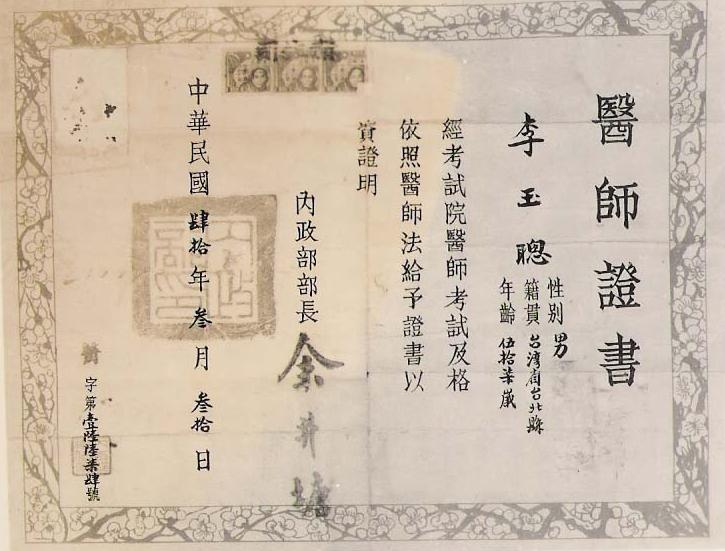 醫師證書
李玉聰
性別男
籍貫台灣省台北縣
年齡伍拾柒歲
經考試院醫師考試及格
依照醫師法給予證書以
資證明
內政部部長
余井塘
中華民國肆拾年叁月叁拾日
字第壹陸陸柒肆號